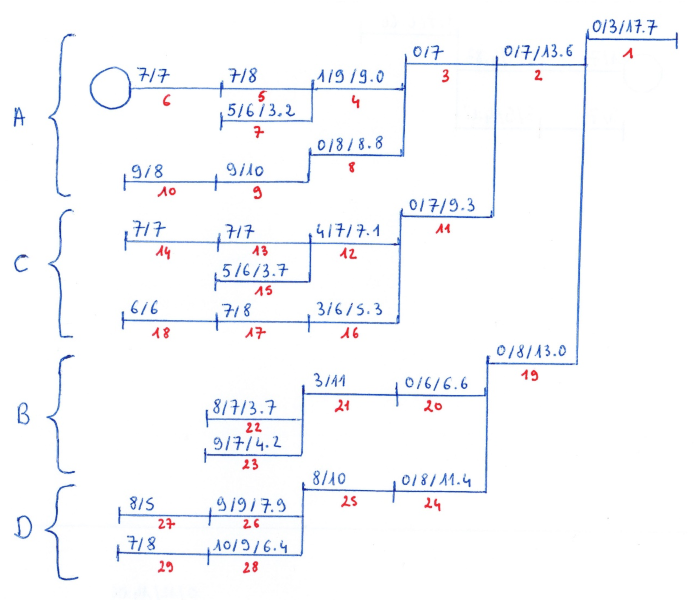 0/3/17.7
1
0/7
3
0/7/13.6
2
A
7/7
6
7/8
5
1/9/9.0
4
5/6/3.2
7
0/8/8.8
8
9/8
10
9/10
9
0/7/9.3
11
C
7/7
14
7/7
13
4/7/7.1
12
5/6/3.7
15
6/6
18
7/8
17
3/6/5.3
16
0/8/13.0
19
B
3/11
21
0/6/6.6
20
8/7/3.7
22
9/7/4.2
23
8/10
25
0/8/11.4
24
D
8/5
27
9/9/7.9
26
7/8
29
10/9/6.4
28